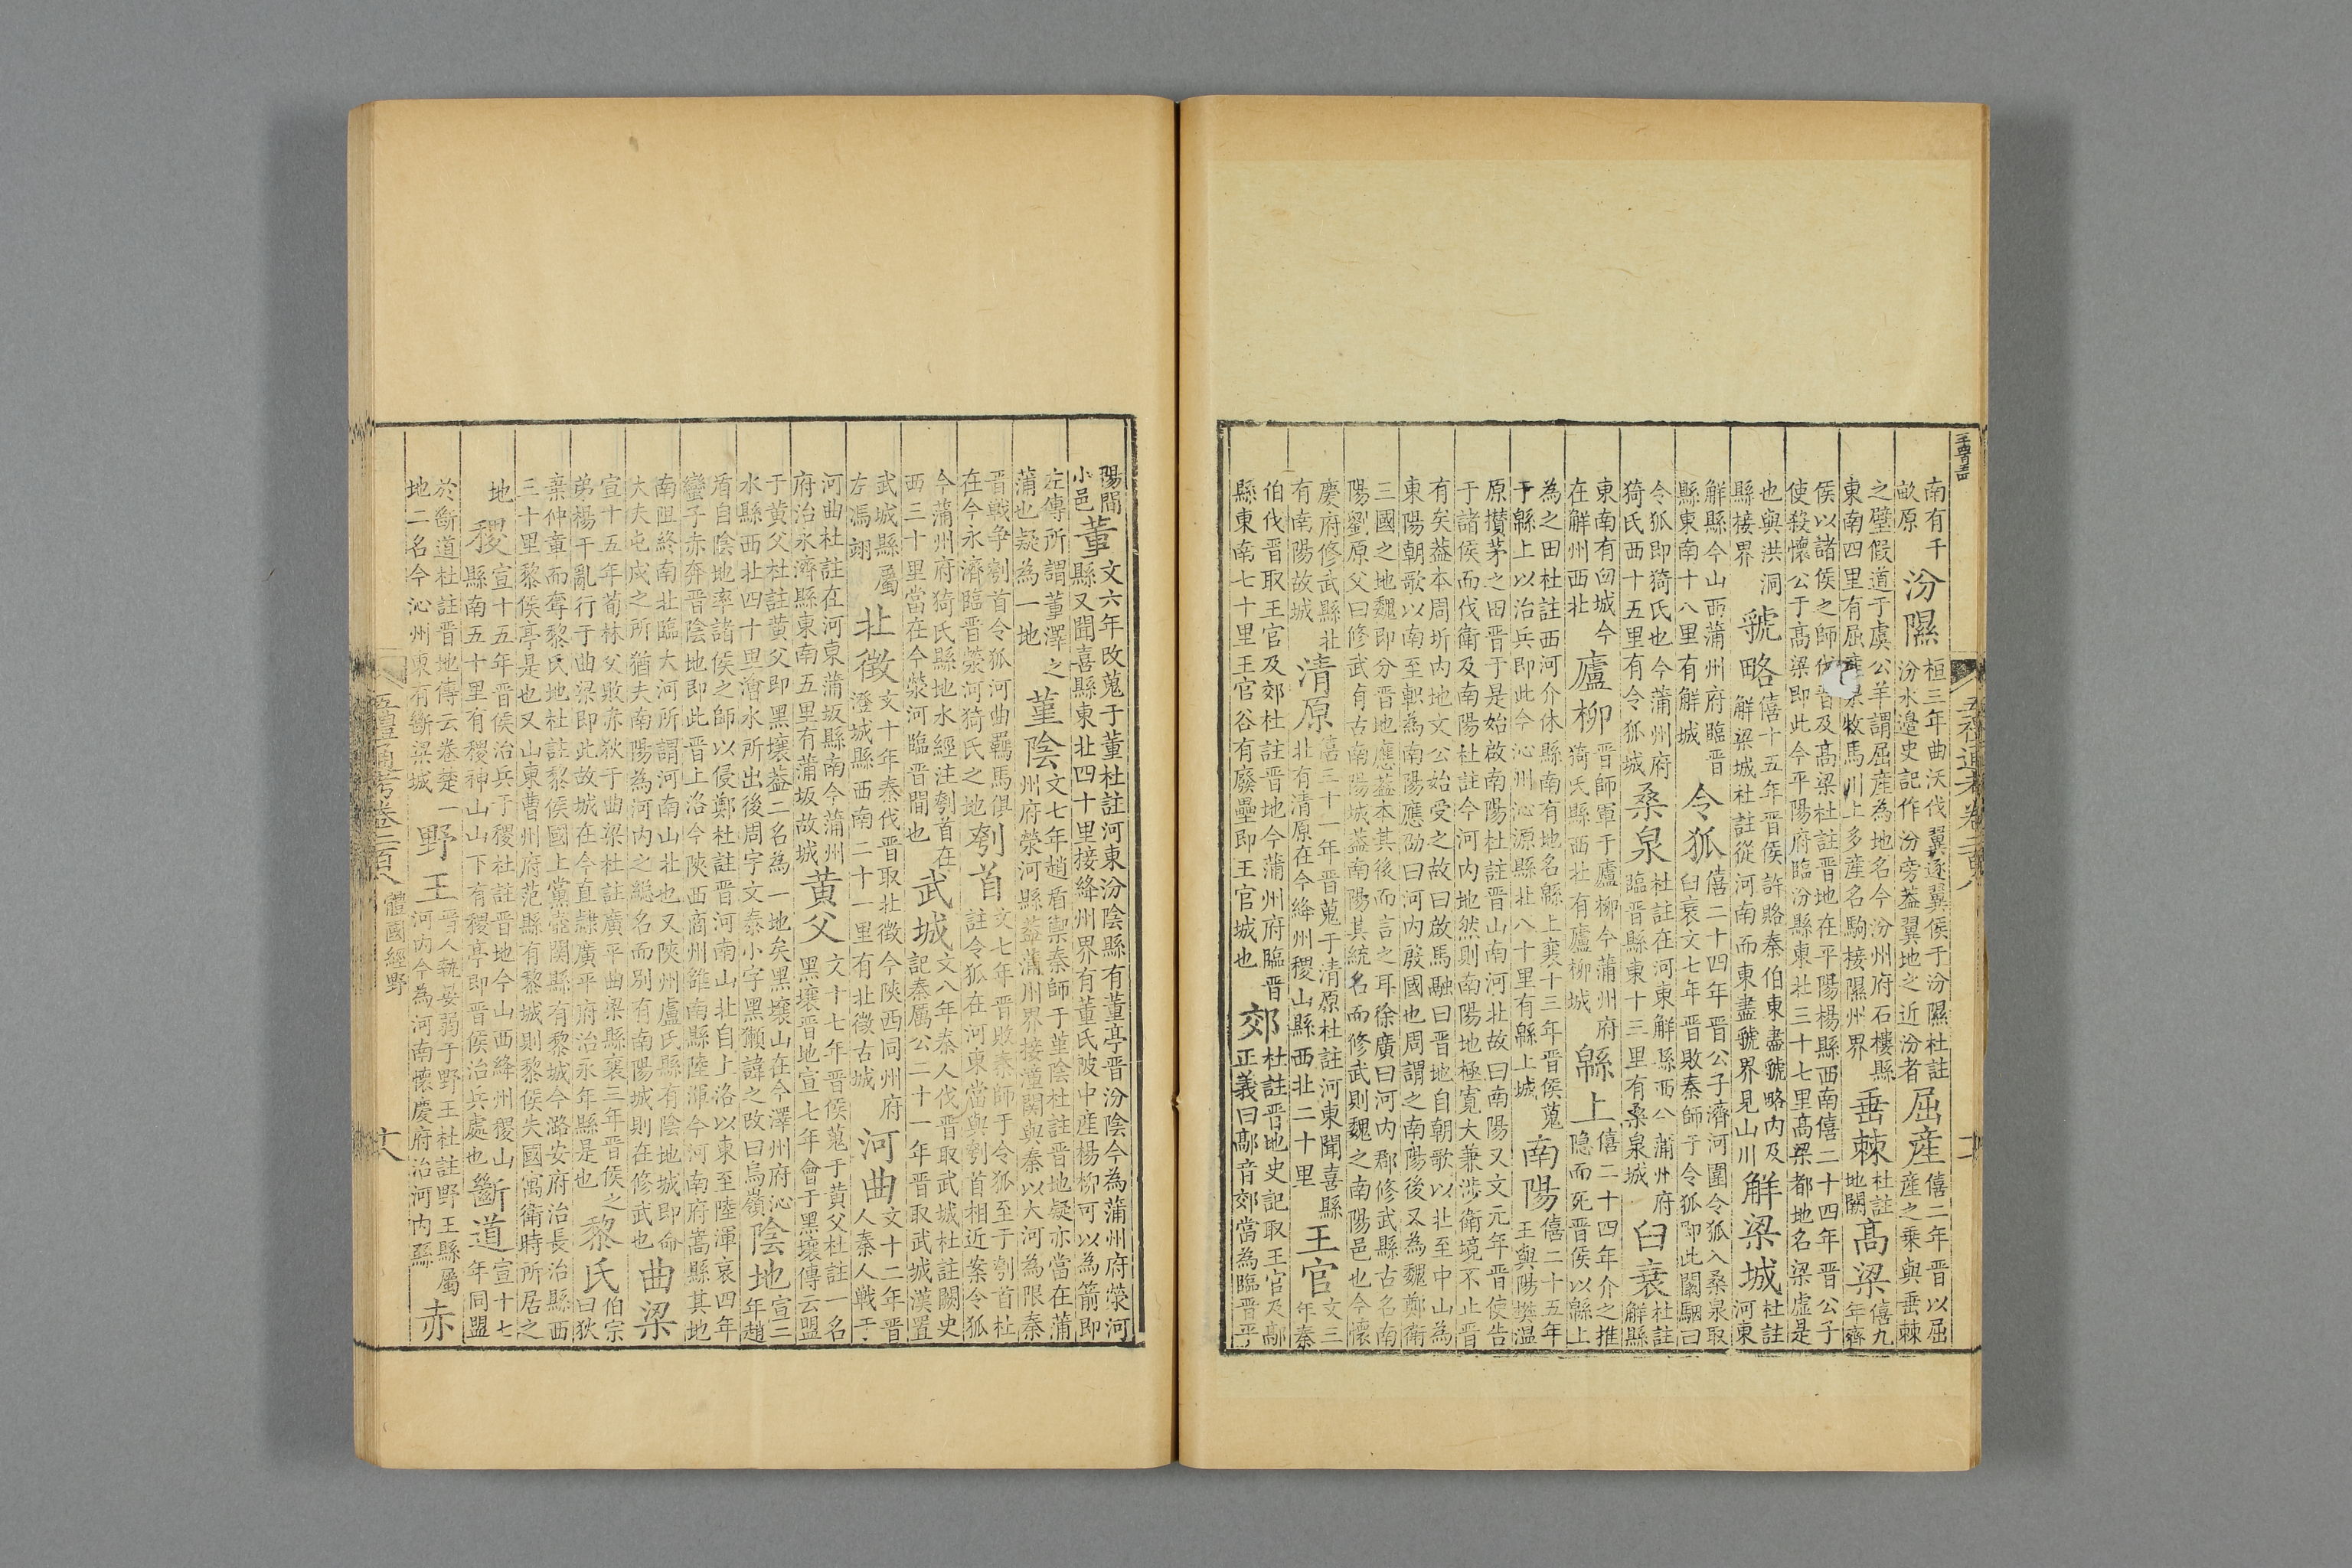 五禮通考卷二百八
南有千畝原 汾隰 桓三年曲沃伐翼逐翼侯于汾隰杜註汾水邉史記作汾旁葢翼地之近汾者 屈産 僖二年晉以屈産之乗與垂棘
之璧假道于虞公羊謂屈産為地名今汾州府石樓縣東南四里有屈泉牧馬川上多産名駒接隰州界 垂棘 杜註地闕 髙梁 僖九年齊
侯以諸侯之師伐晉及髙梁杜註晉地在平陽楊縣西南僖二十四年晉公子使殺懷公于髙梁即此今平陽府臨汾縣東北三十七里髙梁都地名梁虛是
也與洪洞縣接界 虢略 僖十五年晉侯許賂秦伯東盡虢略内及解梁城杜註從河南而東盡虢界見山川 解梁城 杜註河東
解縣今山西蒲州府臨晉縣東南十八里有解城 令狐 僖二十四年晉公子濟河圍令狐入桑泉取臼衰文七年晉敗秦師于令狐即此闞駰曰
令狐即猗氏也今蒲州府猗氏西十五里有令狐城 桑泉 杜註在河東解縣西今蒲州府臨晉縣東十三里有桑泉城 臼衰 杜註解縣
東南有臼城今在解州西北 廬柳 晉師軍于廬柳今蒲州府猗氏縣西北有廬柳城 緜上 僖二十四年介之推隠而死晉侯以緜上
為之田杜註西河介休縣南有地名緜上襄十三年晉侯蒐于緜上以治兵即此今沁州沁源縣北八十里有緜上城 南陽 僖二十五年王與陽樊温
原攢茅之田晉于是始啟南陽杜註晉山南河北故曰南陽又文元年晉使告于諸侯而伐衛及南陽杜註今河内地然則南陽地極寛大兼涉衛境不止晉
有矣葢本周圻内地文公始受之故曰啟馬融曰晉地自朝歌以北至中山為東陽朝歌以南至軹為南陽應劭曰河内殷國也周謂之南陽後又為魏鄭衛
三國之地魏即分晉地應葢本其後而言之耳徐廣曰河内郡修武縣古名南陽劉原父曰修武有古南陽城葢南陽其統名而修武則魏之南陽邑也今懷
慶府修武縣北有南陽故城 清原 僖三十一年晉蒐于清原杜註河東聞喜縣北有清原在今絳州稷山縣西北二十里 王官 文三年秦
伯伐晉取王官及郊杜註晉地今蒲州府臨晉縣東南七十里王官谷有廢壘即王官城也 郊 杜註晉地史記取王官及鄗正義曰鄗音郊當為臨晉平
陽間小邑 董 文六年改蒐于董杜註河東汾陰縣有董亭晉汾陰今為蒲州府滎河縣又聞喜縣東北四十里接絳州界有董氏陂中産楊柳可以為箭即
左傳所謂董澤之蒲也疑為一地 菫陰 文七年趙盾禦秦師于菫陰杜註晉地疑亦當在蒲州府滎河縣葢蒲州界接潼關與秦以大河為限秦
晉戰争刳首令狐河曲羈馬俱在今永濟臨晉滎河猗氏之地 刳首 文七年晉敗秦師于令狐至于刳首杜註令狐在河東當與刳首相近案令狐
今蒲州府猗氏縣地水經注刳首在西三十里當在今滎河臨晉間也 武城 文八年秦人伐晉取武城杜註闕史記秦厲公二十一年晉取武城漢置
武城縣屬左馮翊 北徵 文十年秦伐晉取北徵今陜西同州府澄城縣西南二十一里有北徵古城 河曲 文十二年晉人秦人戰于
河曲杜註在河東蒲坂縣南今蒲州府治永濟縣東南五里有蒲坂故城 黄父 文十七年晉侯蒐于黄父杜註一名黑壤晉地宣七年會于黑壤傳云盟
于黄父杜註黄父即黑壤葢二名為一地矣黑壤山在今澤州府沁水縣西北四十里澮水所出後周宇文泰小字黑獺諱之改曰烏嶺 陰地 宣二年趙
盾自陰地率諸侯之師以侵鄭杜註晉河南山北自上洛以東至陸渾哀四年蠻子赤奔晉陰地即此晉上洛今陜西商州雒南縣陸渾今河南府嵩縣其地
南阻終南北臨大河所謂河南山北也又陜州盧氏縣有陰地城即命大夫屯戍之所猶夫南陽為河内之緫名而别有南陽城則在修武也 曲梁
宣十五年荀林父敗赤狄于曲梁杜註廣平曲梁縣襄三年晉侯之弟楊干亂行于曲梁即此故城在今直隷廣平府治永年縣是也 黎氏 伯宗曰狄
棄仲章而奪黎氏地杜註黎侯國上黨壺關縣有黎城今潞安府治長治縣西三十里黎侯亭是也又山東曹州府范縣有黎城則黎侯失國寓衛時所居之
地 稷 宣十五年晉侯治兵于稷杜註晉地今山西絳州稷山縣南五十里有稷神山山下有稷亭即晉侯治兵處也 斷道 宣十七年同盟
於斷道杜註晉地傳云卷楚一地二名今沁州東有斷梁城 野王 晉人執晏弱于野王杜註野王縣屬河内今為河南懷慶府治河内縣 赤
五禮通考卷二百八 體國經野